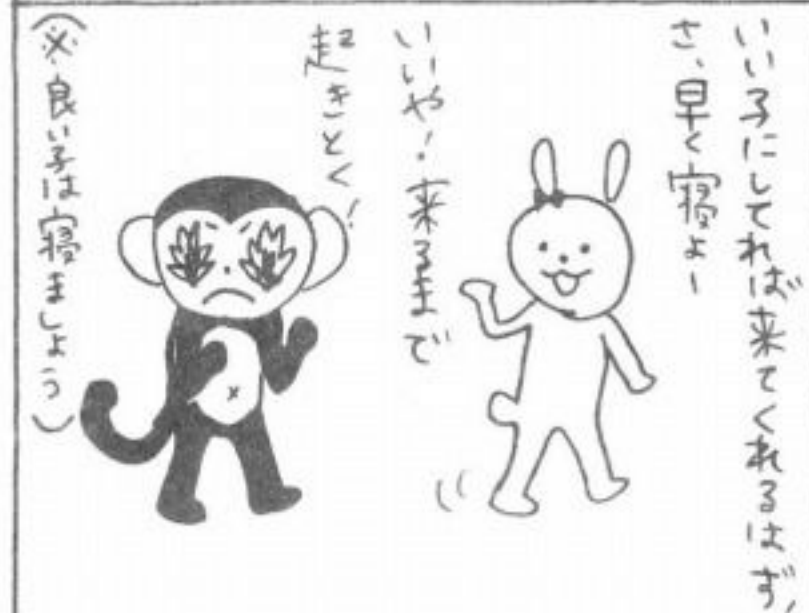 いい子にしてれば来てくれるはず！
さ、早く寝よー
いいや！来るまで
起きとく！
（※良い子は寝ましょう）